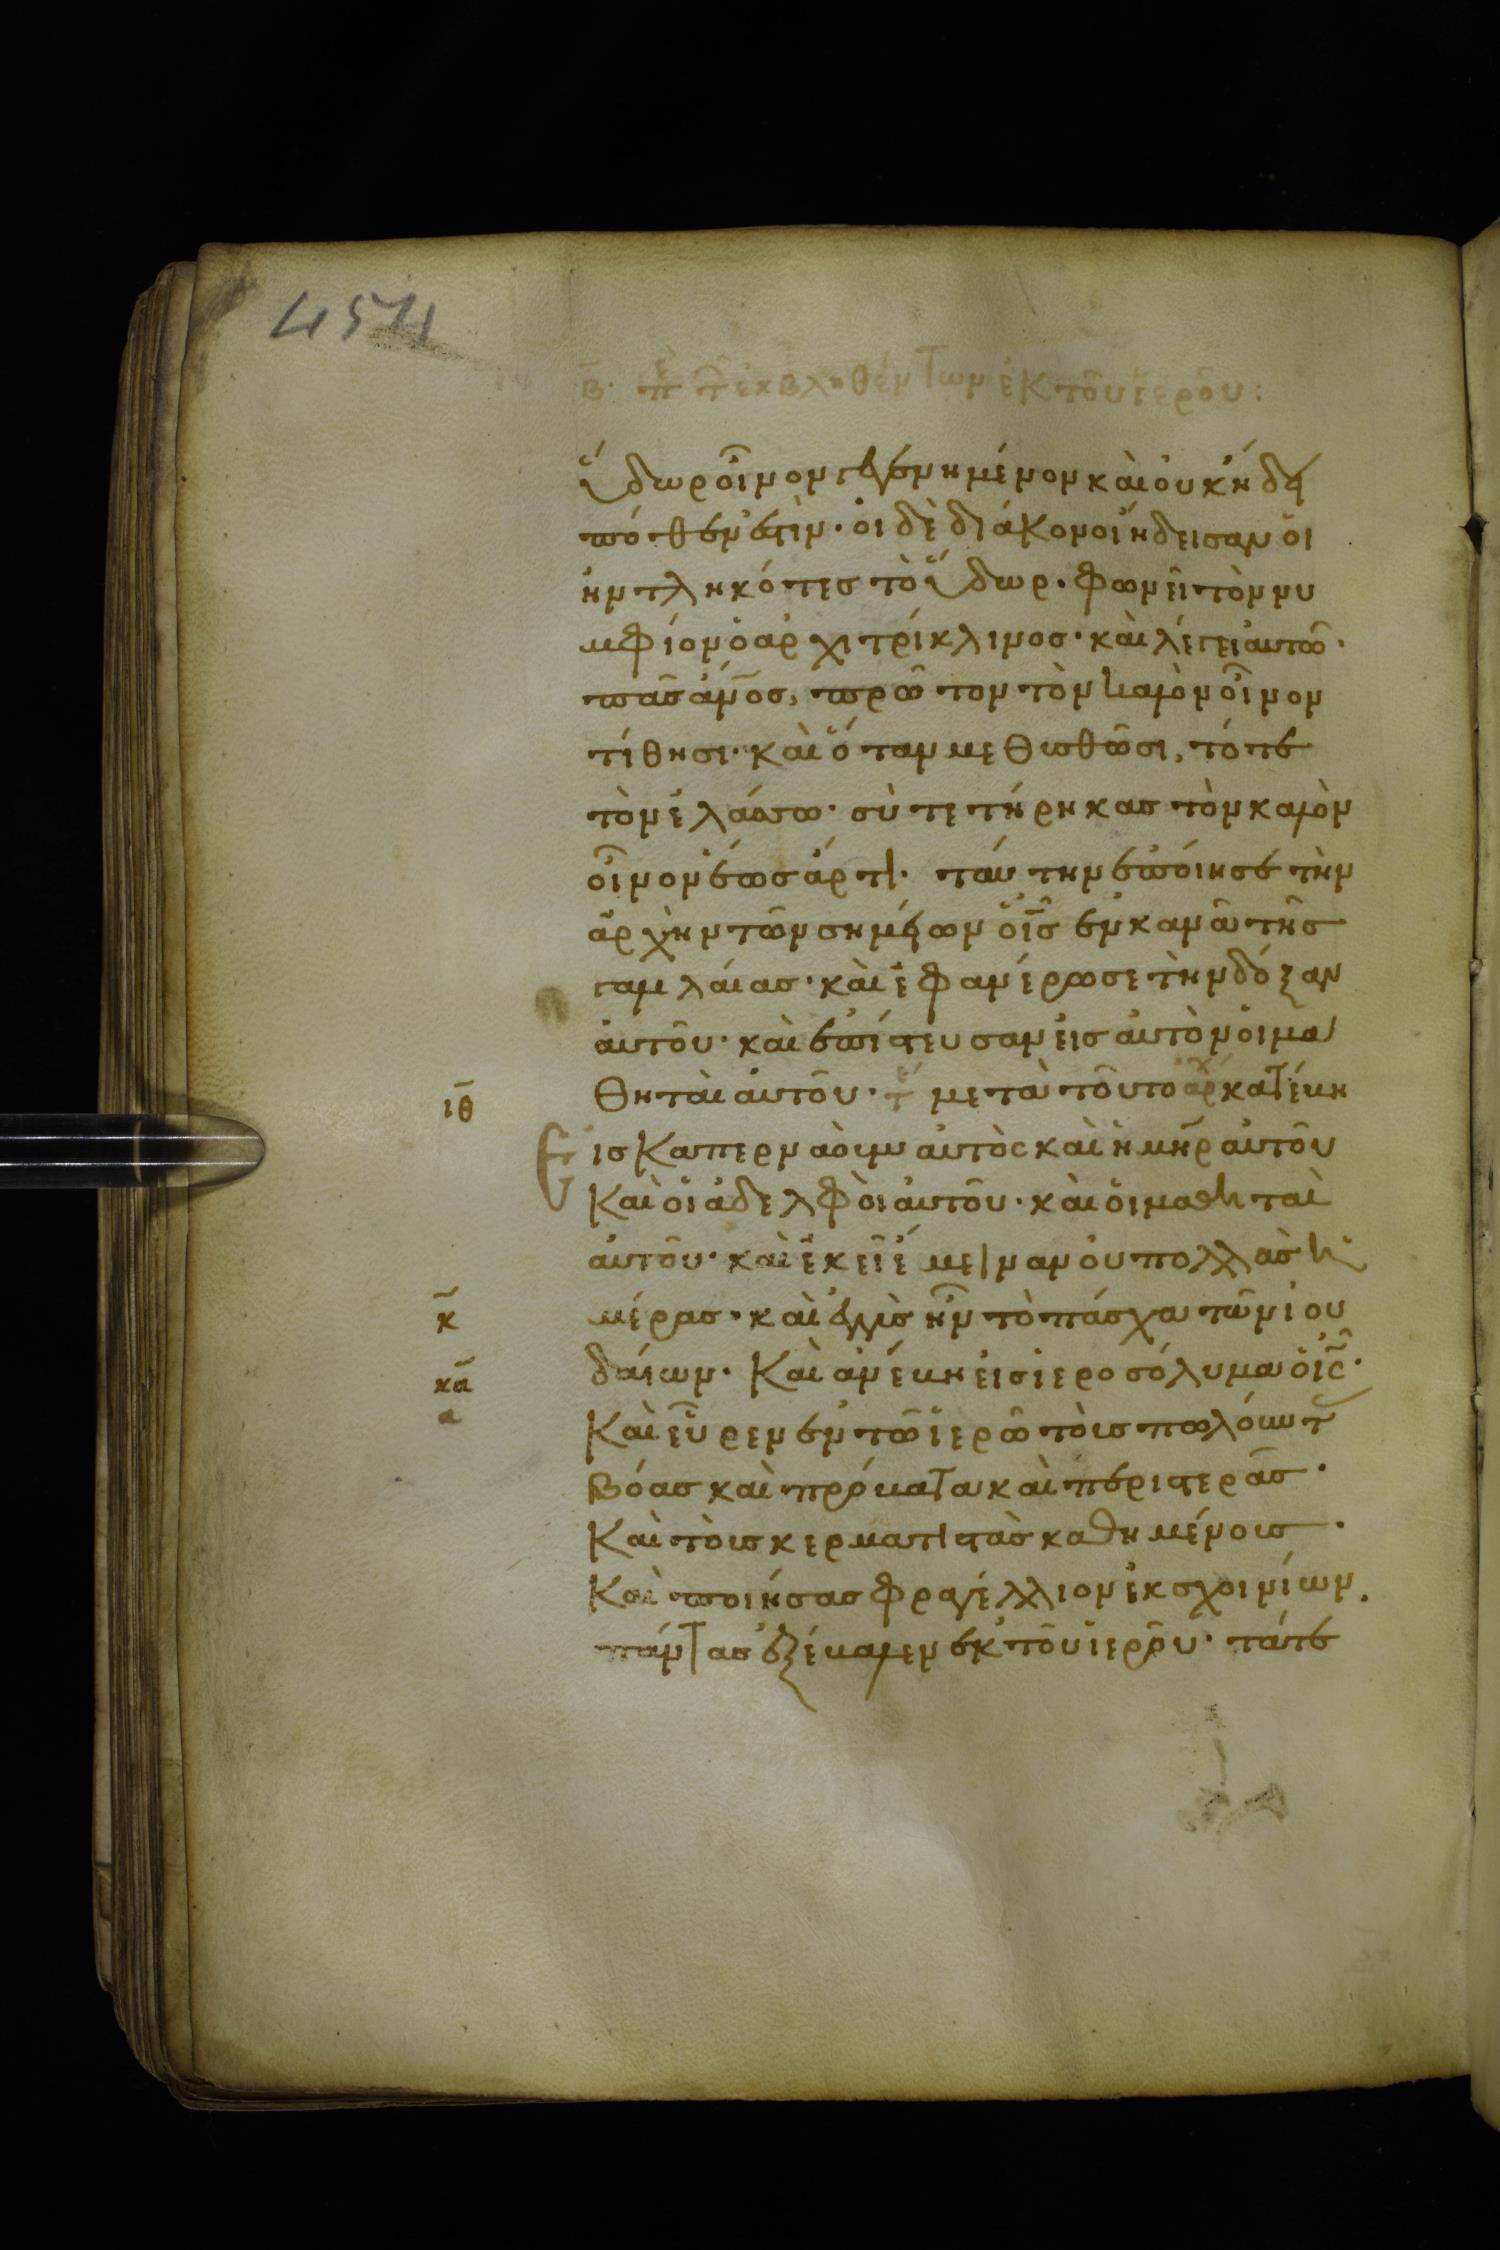 454
β· πε τ εκβληθέντων ἐκ τοῦ ἱεροῦ:
ὕδωρ οἶνον γεγενημένον καὶ οὐκ ἤδει
πόθεν ἐστὶν· οἱ δὲ διάκονοι ἤδεισαν οἱ
ἠντληκότες τὸ ὕδωρ. φωνεῖ τὸν νυ
μφίον ὁ ἀρχιτρίκλινος· καὶ λέγει αὐτῶ·
πᾶς ἀνος, πρῶτον τὸν καλὸν οἶνον
τίθησι· καὶ ὅταν μεθυσθῶσι, τότε
τὸν ἐλάσσω· σὺ τετήρηκας τὸν καλὸν
οἶνον ἕως ἄρτι· ταύτην ἐποίησε τὴν
ἀρχὴν τῶν σημείων ὁ ις ἐν κανᾶ τῆς
γαλιλαίας· καὶ ἐφανέρωσε τὴν δόξαν
αὐτοῦ· καὶ ἐπίστευσαν εἰς αὐτὸν οἱ μα
θηταὶ αὐτοῦ· τε μετὰ τοῦτο αρχ κατέβη
ιθ
Εἰς Καπερναοὺμ αὐτὸς καὶ ἡ μηρ αὐτοῦ
Καὶ οἱ ἀδελφοὶ αὐτοῦ· καὶ οἱ μαθηταὶ
αὐτοῦ· καὶ ἐκεῖ ἔμειναν οὐ πολλὰς ἡ
κ μέρας· καὶ ἐγγὺς ἦν τὸ πάσχα τῶν ἰου
κα δαίων· Καὶ ἀνέβη εἰς ἱεροσόλυμα ὁ ις·
α Καὶ εὗρεν ἐν τῶ ἱερῶ τοὺς πωλοῦντ
βόας καὶ πρόβατα καὶ περιστερᾶς·
Καὶ τοὺς κερματιστὰς καθημένους·
Καὶ ποιήσας φραγέλλιον ἐκ σχοινίων,
πάντας ἐξέβαλεν ἐκ τοῦ ἱεροῦ· τάτε